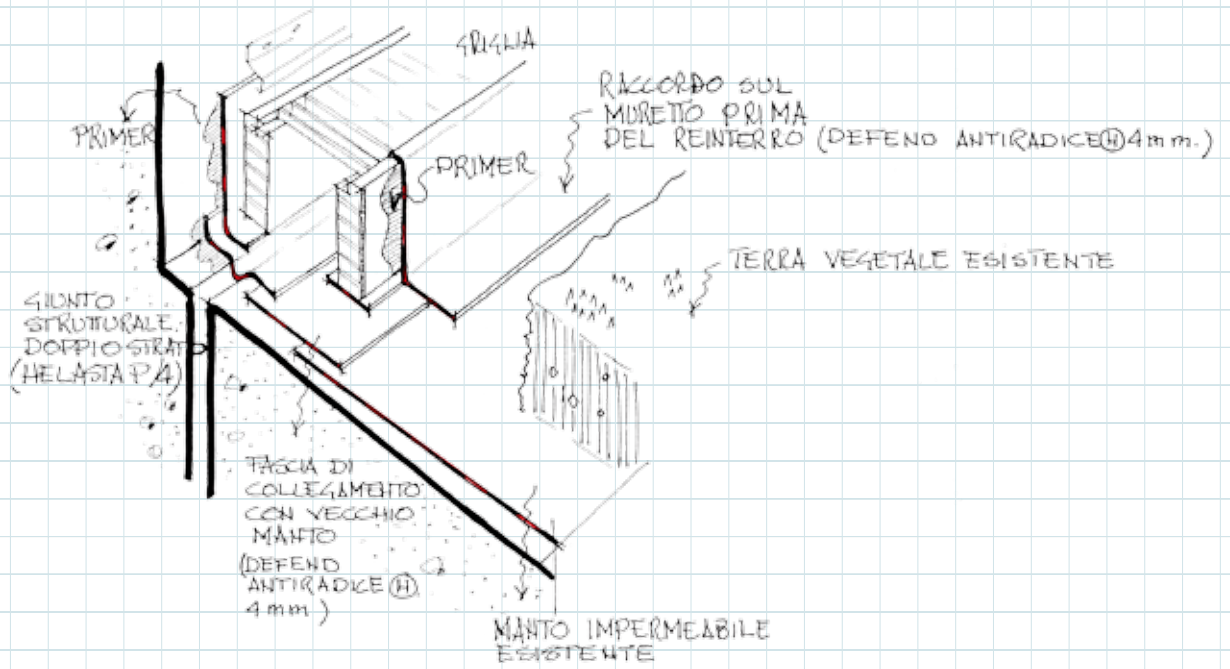 GRIGLIA
RACCORDO SUL
MURETTO PRIMA
DEL REINTERRO (DEFEND ANTIRADICE Ⓗ 4mm.)
PRIMER
PRIMER
TERRA VEGETALE ESISTENTE
GIUNTO
STRUTTURALE
DOPPIO STRATO
(HELASTA P/4)
FASCIA DI
COLLEGAMENTO
CON VECCHIO
MANTO
(DEFEND
ANTIRADICE Ⓗ
4mm)
MANTO IMPERMEABILE
ESISTENTE